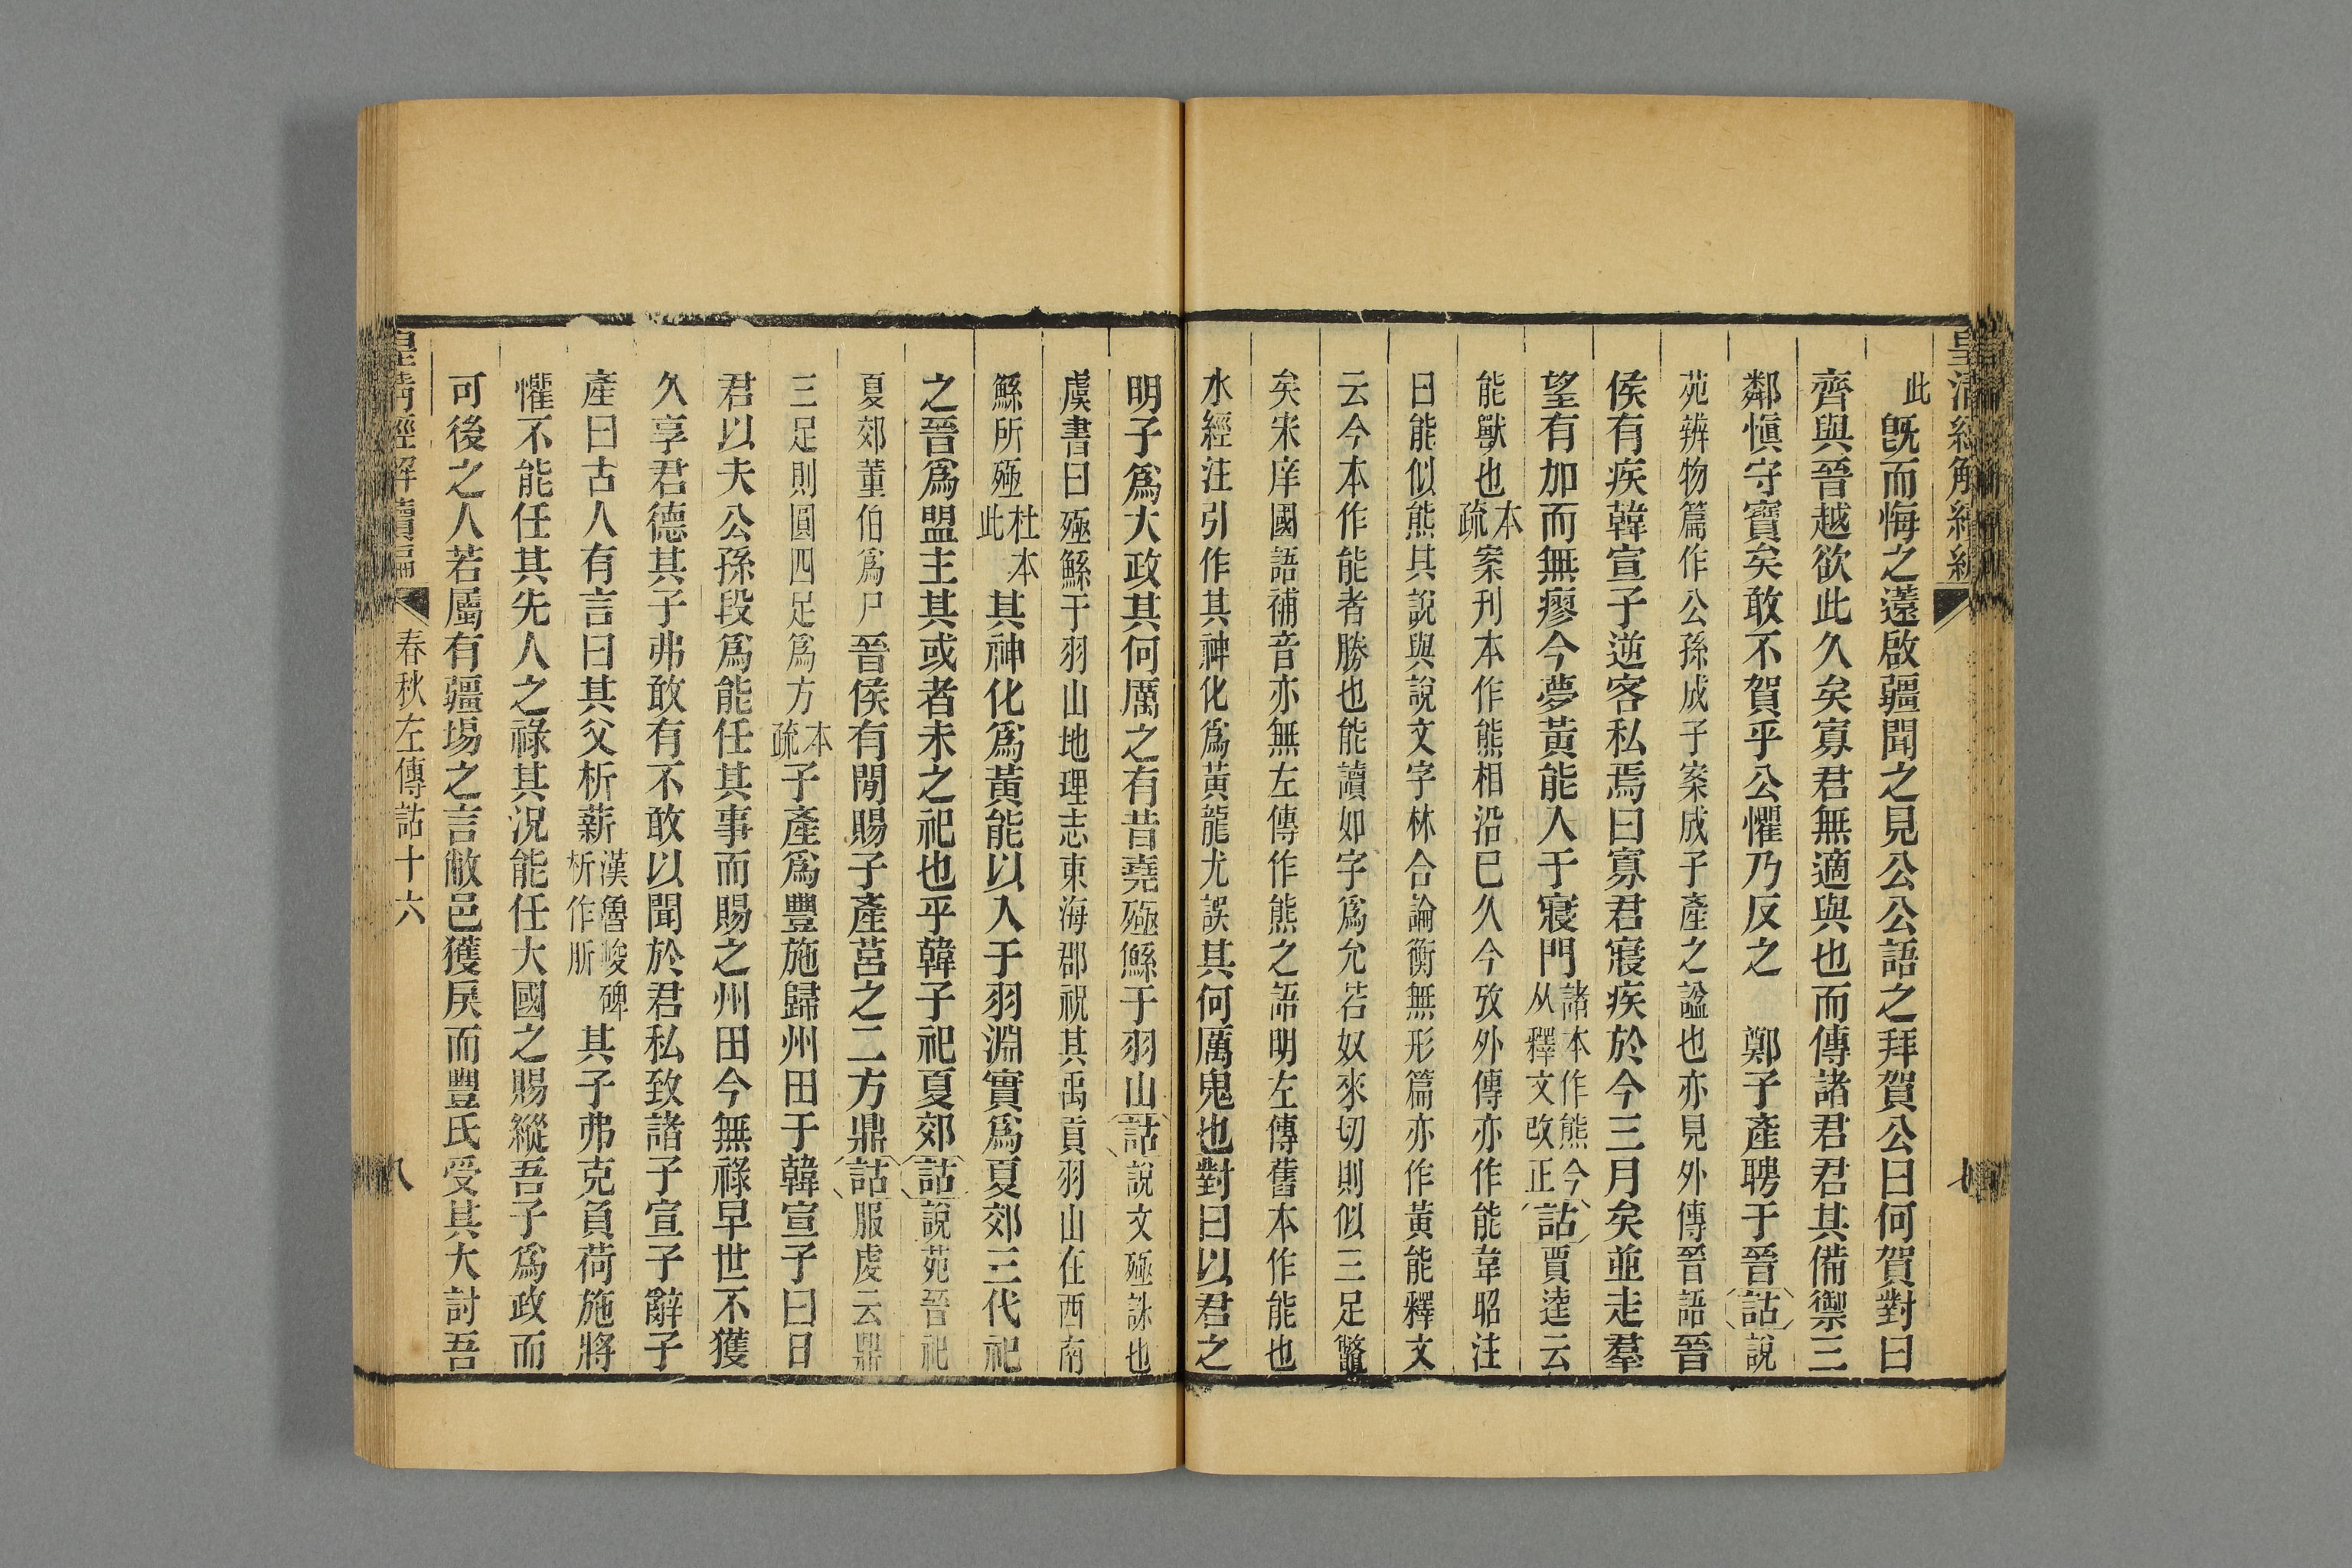 皇清經解續編
七
此既而悔之薳啟疆聞之見公公語之拜賀公曰何賀對曰
齊與晉越欲此久矣寡君無適與也而傳諸君君其備禦三
鄰愼守寶矣敢不賀乎公懼乃反之　鄭子產聘于晉詁說
苑辨物篇作公孫成子案成子產之諡也亦見外傳晉語晉
侯有疾韓宣子逆客私焉曰寡君寢疾於今三月矣並走羣
望有加而無瘳今夢黃能入于寢門諸本作熊今从釋文改正詁賈逵云
能獸也本疏案刊本作熊相沿巳久今攷外傳亦作能韋昭注
曰能似熊其說與說文字林合論衡無形篇亦作黃能釋文
云今本作能者勝也能讀如字爲允若奴來切則似三足鼈
矣宋庠國語補音亦無左傳作熊之語明左傳舊本作能也
水經注引作其神化爲黃龍尤誤其何厲鬼也對曰以君之
明子爲大政其何厲之有昔堯殛鯀于羽山詁說文殛誅也
虞書曰殛鯀于羽山地理志東海郡祝其禹貢羽山在西南
鯀所殛杜本此其神化爲黃能以入于羽淵實爲夏郊三代祀
之晉爲盟主其或者未之祀也乎韓子祀夏郊詁說苑晉祀
夏郊董伯爲尸晉侯有閒賜子產莒之二方鼎詁服虔云鼎
三足則圓四足爲方本疏子產爲豐施歸州田于韓宣子曰日
君以夫公孫段爲能任其事而賜之州田今無祿早世不獲
久享君德其子弗敢有不敢以聞於君私致諸子宣子辭子
產曰古人有言曰其父析薪漢魯峻碑析作㭊其子弗克負荷施將
懼不能任其先人之祿其況能任大國之賜縱吾子爲政而
可後之人若屬有疆埸之言敝邑獲戾而豐氏受其大討吾
皇清經解續編
春秋左傳詁十六
八